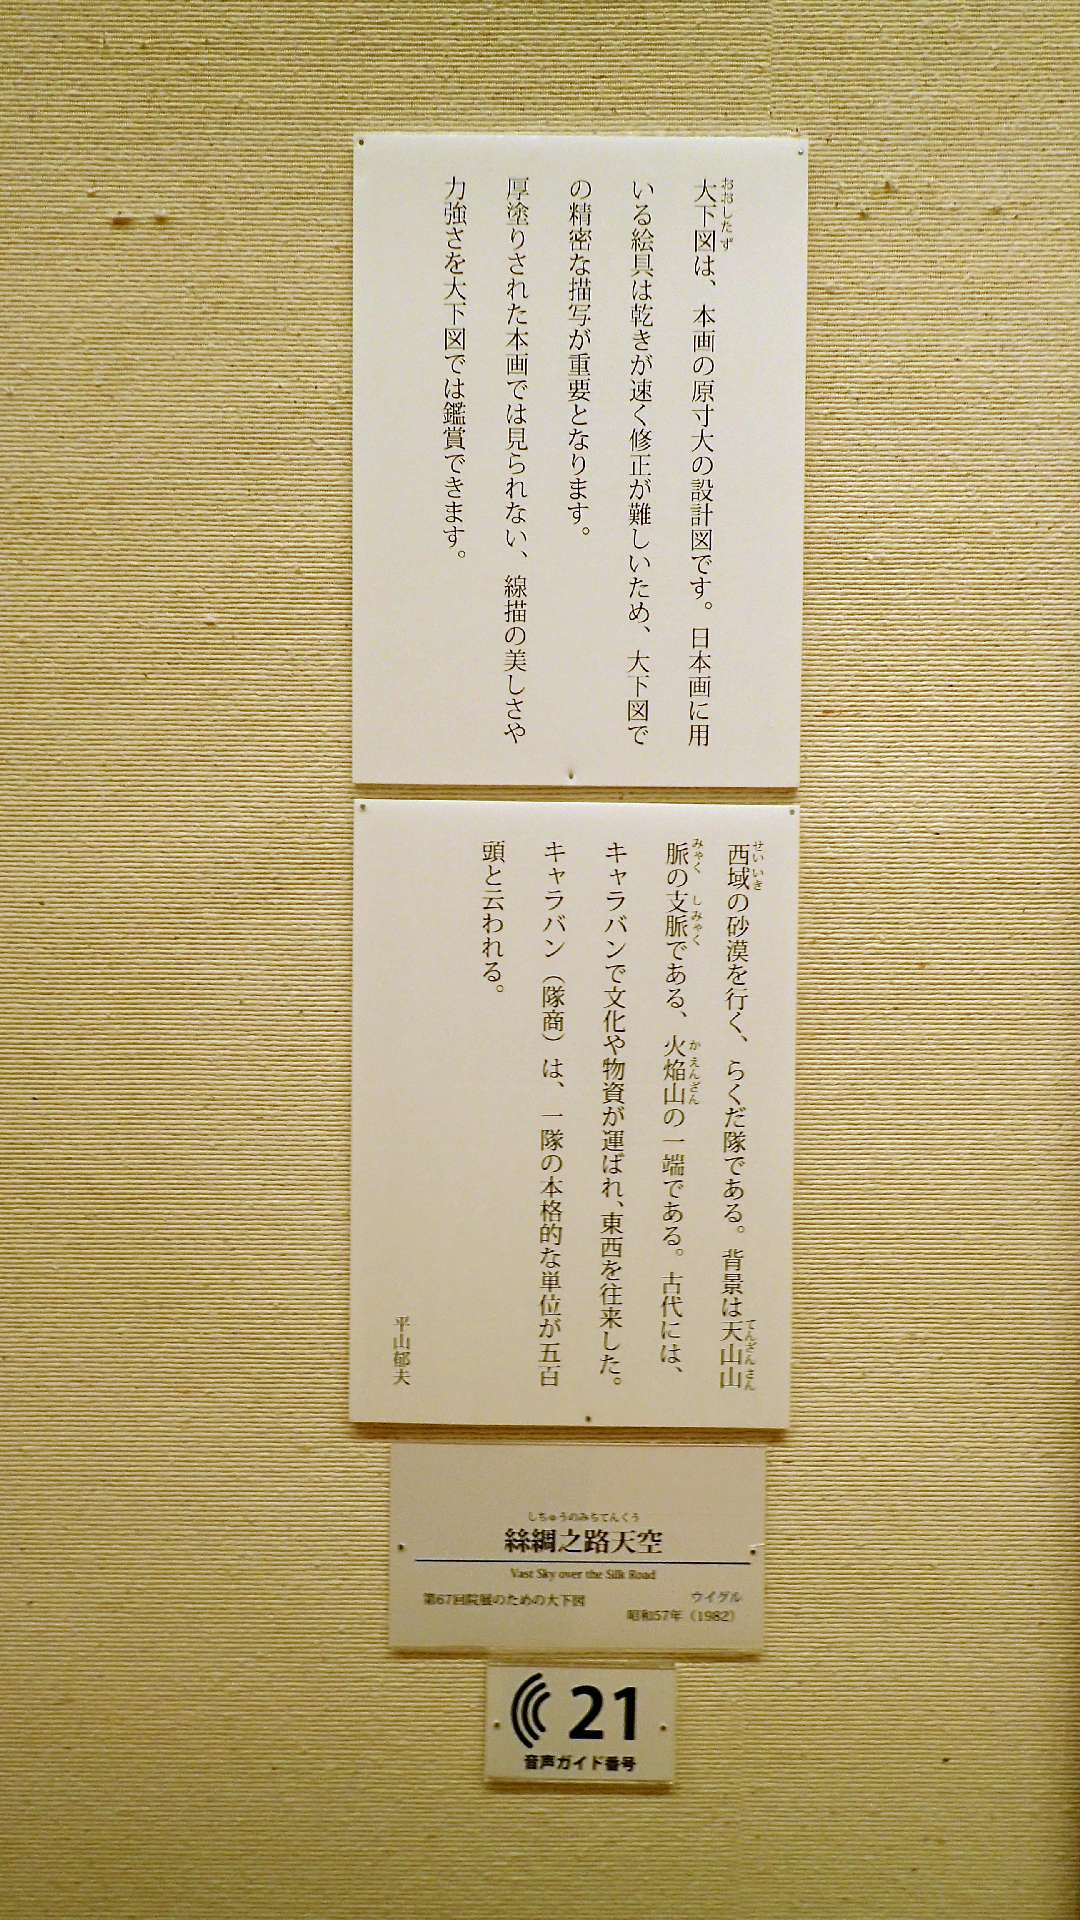 大下図は、本画の原寸大の設計図です。日本画に用
おおしたず
いる絵具は乾きが速く修正が難しいため、大下図で
の精密な描写が重要となります。
厚塗りされた本画では見られない、線描の美しさや
力強さを大下図では鑑賞できます。
西域の砂漠を行く、らくだ隊である。背景は天山山
せいいき てんざんさん
脈の支脈である、火焔山の一端である。古代には、
みゃく しみゃく かえんざん
キャラバンで文化や物資が運ばれ、東西を往来した。
キャラバン（隊商）は、一隊の本格的な単位が五百
頭と云われる。
平山郁夫
しちゅうのみちてんくう
絲綢之路天空
Vast Sky over the Silk Road
第67回院展のための大下図
ウイグル
昭和57年（1982）
21
音声ガイド番号